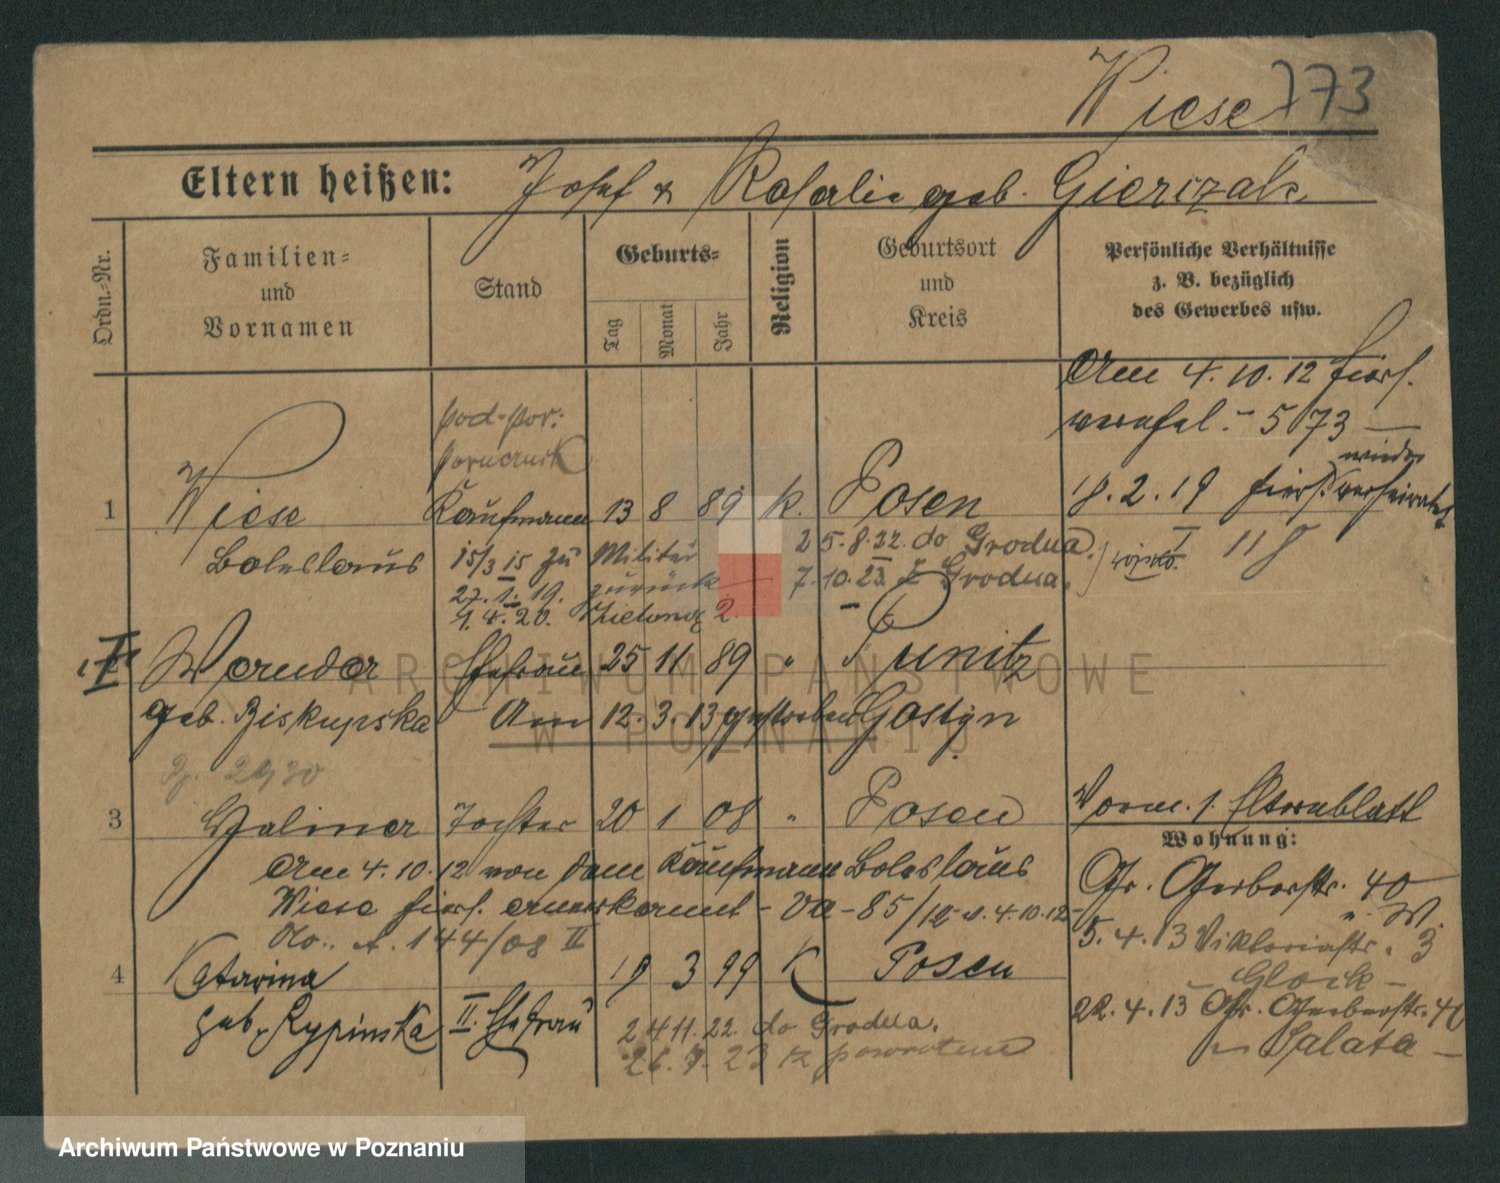 Wiese 773
Eltern heißen: Josef & Rosalie geb. Gierczak
Ordn.-Nr.
Familien- und Vornamen
Stand
Geburts-
Tag
Monat
Jahr
Religion
Geburtsort und Kreis
Persönliche Verhältnisse
z. B. bezüglich
des Gewerbes usw.
Am 4.10.12 hiers.
verehel. - 573 -
wieder
18.2.19 hiers. verheiratet
I 118
pod-por.
porucznik
1 Wiese Kaufmann 13 8 89 k. Posen
Boleslaus
15/3 15 zu Militär
27.1.19. zurück
1.4.20.
25.8.22. do Grodna.
7.10.23. z Grodna.
Wanda Ehefrau 25 11 89 " Punitz
geb. Biskupska Am 12.3.13 gestorben Gostyn
3 Halina Tochter 20 1 08 " Posen
Vorm. 1. Elternblatt
Am 4.10.12 von dem Kaufmann Boleslaus
Wiese hiers. anerkannt - Va - 85/12 v. 4.10.12 -
No.. A. 144/08 II
4 Katarina 19 3 99 K Posen
geb. Rypinska II. Ehefrau
24 11.22. do Grodna.
23 z powrotem
Wohnung:
Gr. Gerberstr. 40
" W.
5.4.13 Viktoriastr. 3
- Glock -
22.4.13 Gr. Gerberstr. 40
- Salata -
ARCHIWUM PAŃSTWOWE
W POZNANIU
Archiwum Państwowe w Poznaniu